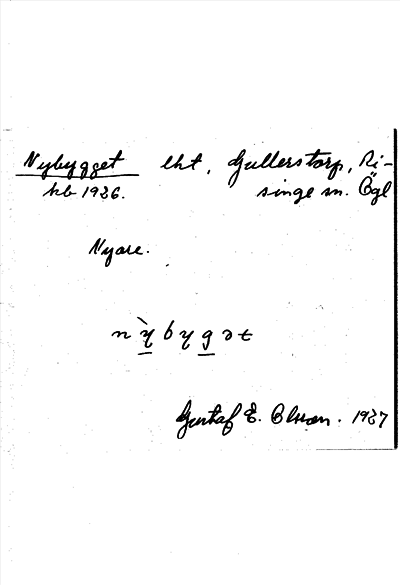 Nybygget lht, Gullerstorp, Ri-
kb 1926. singe sn. Ögl
Nyare.
nỳbygət
Gustaf E. Olsson. 1927